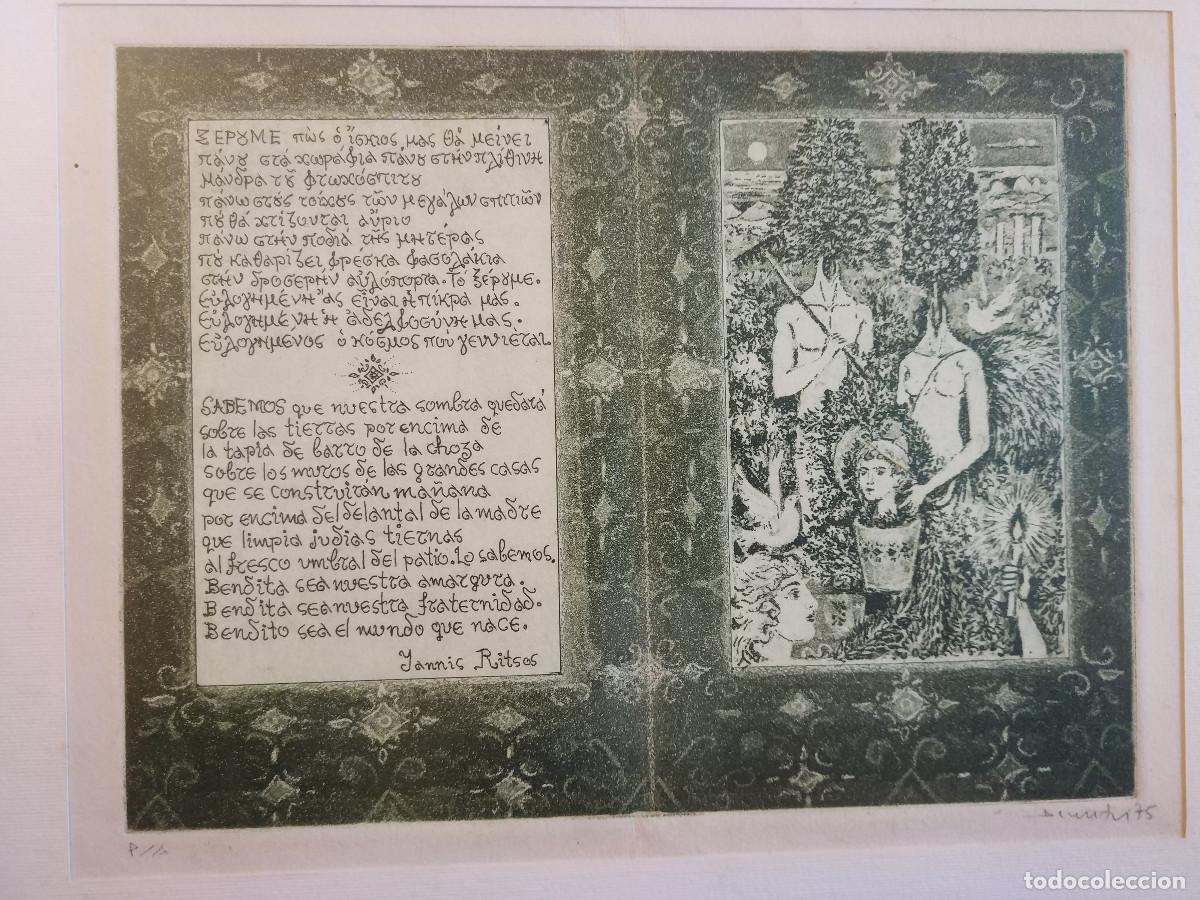 ΞΕΡΟΥΜΕ πὼς ὁ ἴσκιος μας θὰ μείνει
πάνου στὰ χωράφια πάνου στὴν πλίθινη
μάντρα τοῦ φτωχόσπιτου
πάνω στοὺς τοίχους τῶν μεγάλων σπιτιῶν
ποὺ θὰ χτίζουνται αὔριο
πάνω στὴν ποδιὰ τῆς μητέρας
ποὺ καθαρίζει φρέσκα φασολάκια
στὴν δροσερὴν αὐλόπορτα. Τὸ ξέρουμε.
Εὐλογημένη ἂς εἶναι ἡ πίκρα μας.
Εὐλογημένη ἡ ἀδελφοσύνη μας.
Εὐλογημένος ὁ κόσμος ποὺ γεννιέται
SABEMOS que nuestra sombra quedará
sobre las tierras por encima de
la tapia de barro de la choza
sobre los muros de las grandes casas
que se construirán mañana
por encima del delantal de la madre
que limpia judias tiernas
al fresco umbral del patio. Lo sabemos.
Bendita sea nuestra amargura.
Bendita sea nuestra fraternidad.
Bendito sea el mundo que nace.
Yannis Ritsos
P/A
75
todocoleccion